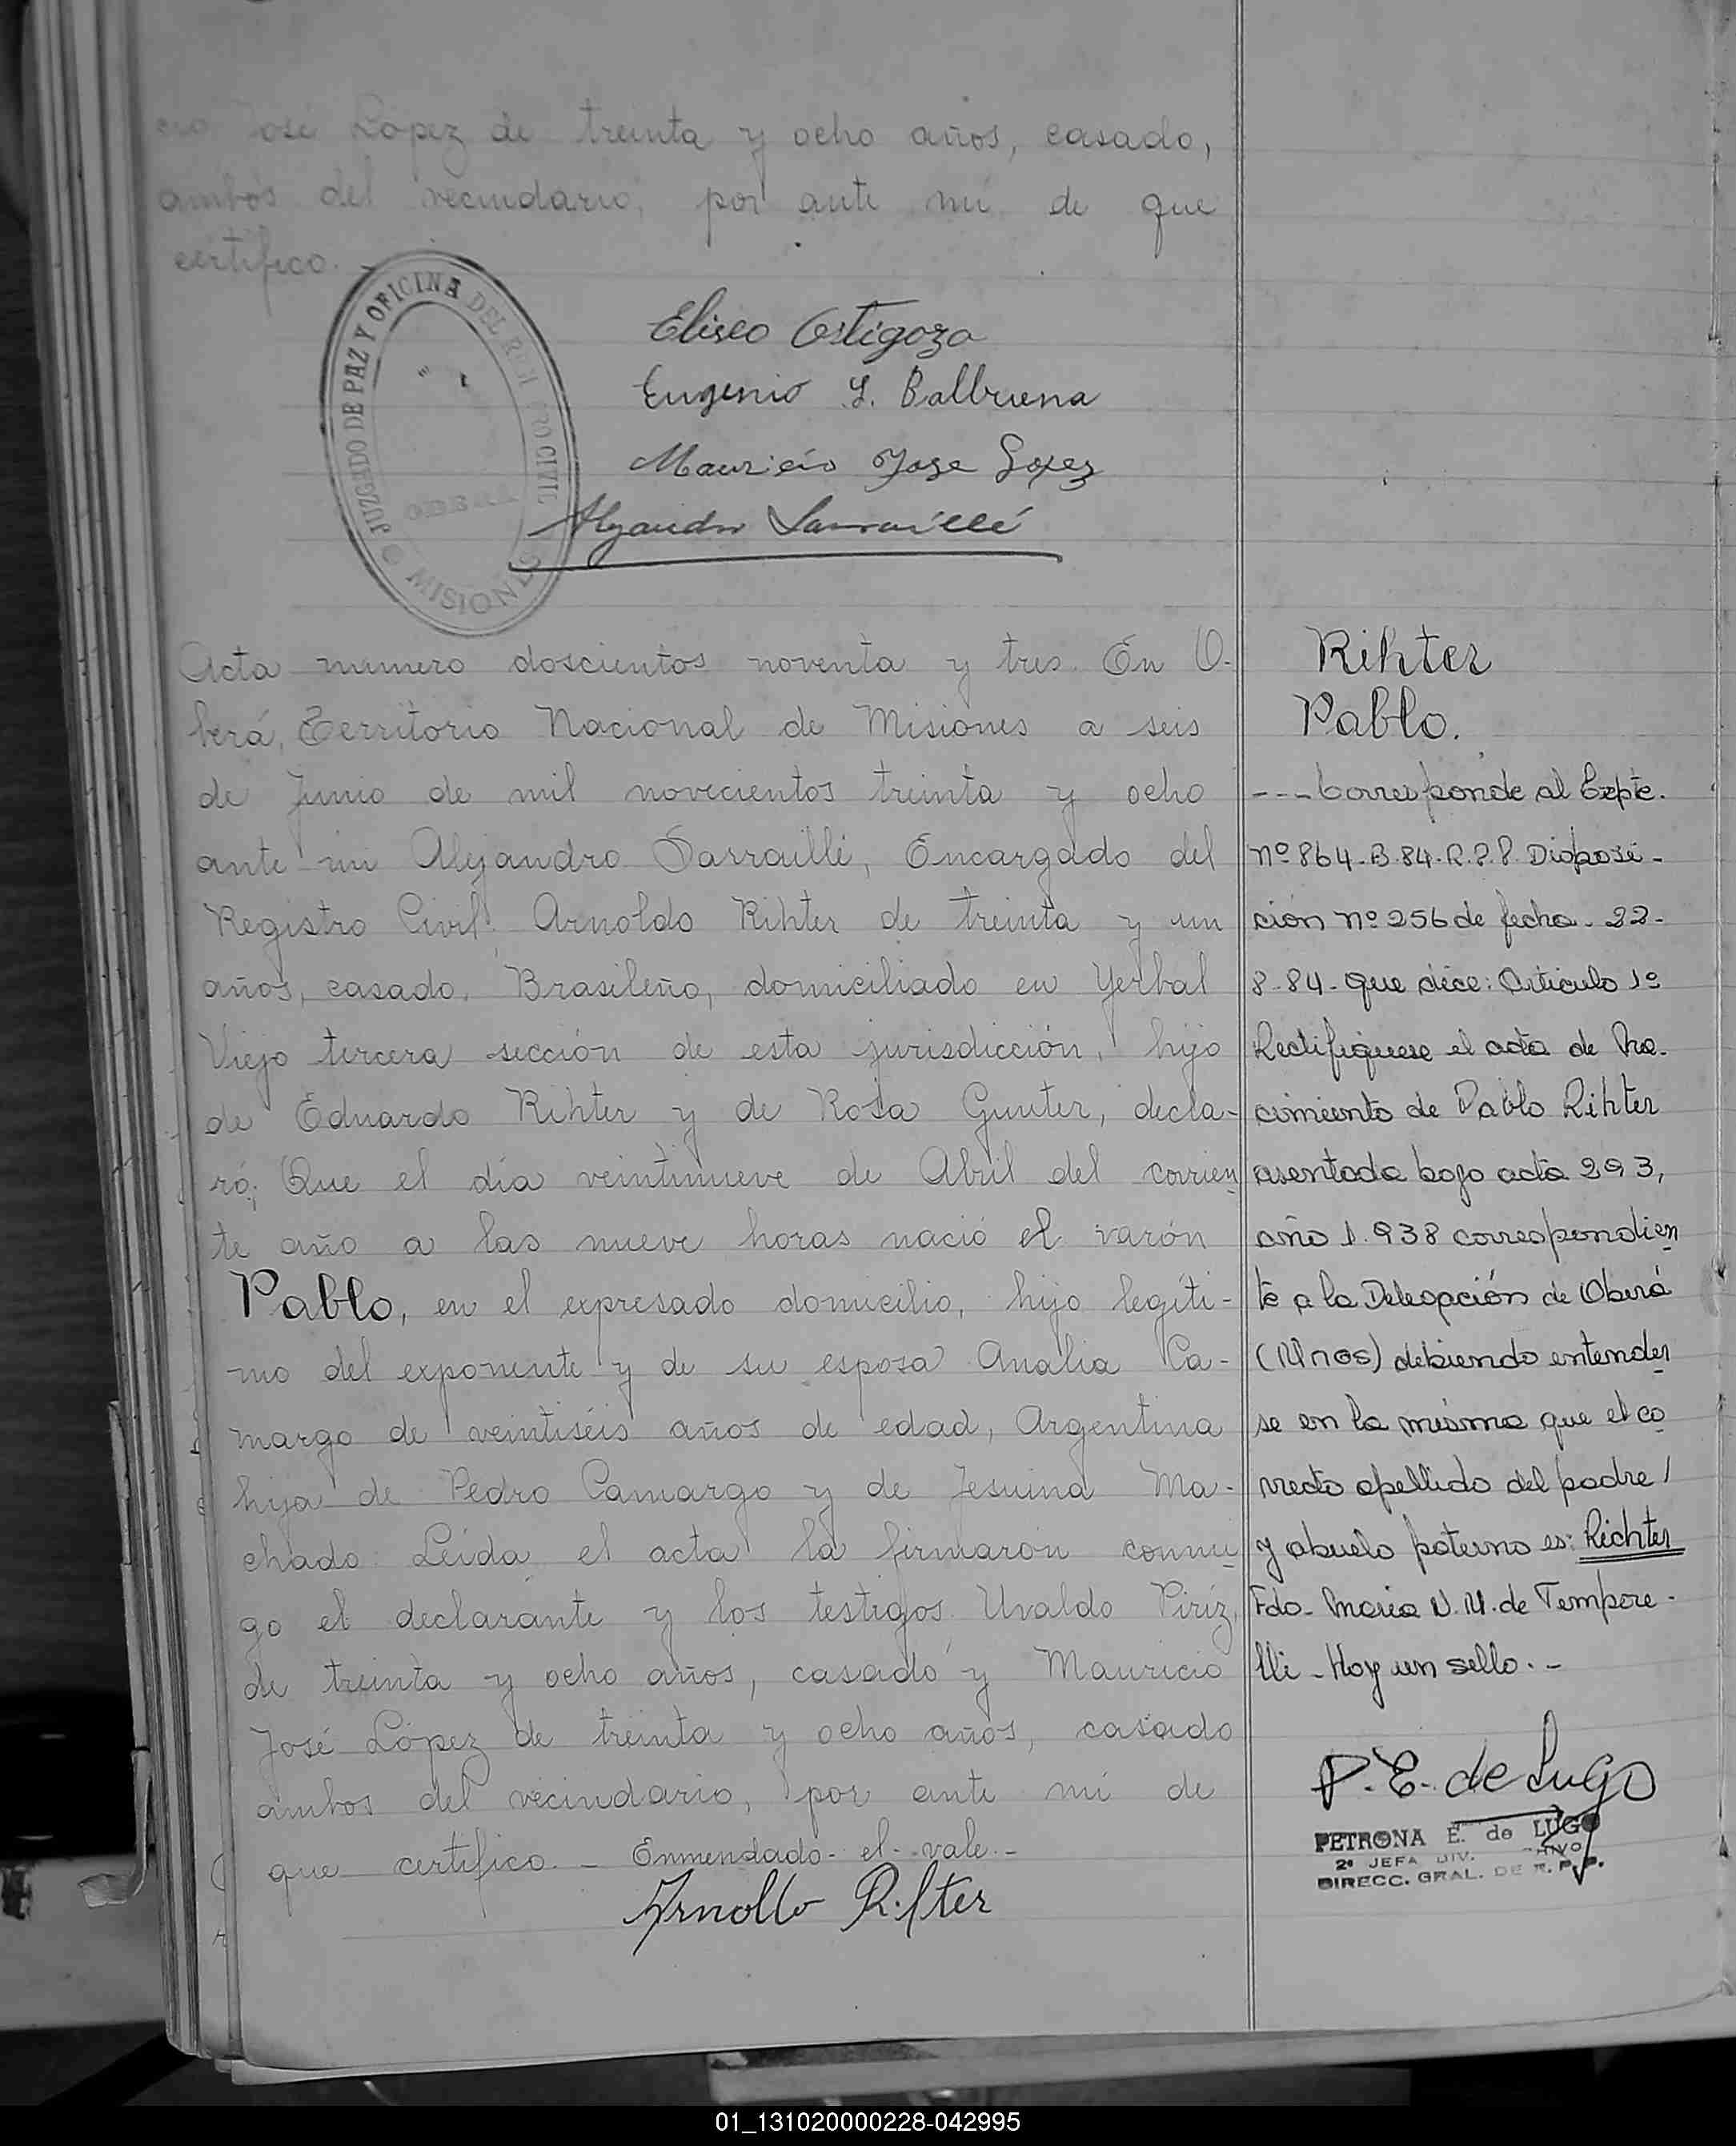 cio José López de treinta y ocho años, casado,
ambos del vecindario, por ante mí de que
certifico.-
JUZGADO DE PAZ Y OFICINA DEL REGISTRO CIVIL
MISIONES
Eliseo Ostigoza
Eugenio Y. Balbuena
Mauricio Jose Lopez
Alejandro Sarraillé
Acta número doscientos noventa y tres. En O-
berá, Territorio Nacional de Misiones a seis
de Junio de mil novecientos treinta y ocho
ante mi Alejandro Sarraillé, Encargado del
Registro Civil: Arnoldo Rihter de treinta y un
años, casado, Brasileño, domiciliado en Yerbal
Viejo tercera sección de esta jurisdicción, hijo
de Eduardo Rihter y de Rosa Gunter, decla-
ró: Que el día veintinueve de Abril del corrien
te año a las nueve horas nació el varón
Pablo, en el expresado domicilio, hijo legíti-
mo del exponente y de su esposa Analia Ca-
margo de veintiséis años de edad, Argentina
hija de Pedro Camargo y de Jesuina Ma-
chado. Leída el acta la firmaron conmi
go el declarante y los testigos Uvaldo Piriz,
de treinta y ocho años, casado y Mauricio
José López de treinta y ocho años, casado
ambos del vecindario, por ante mí de
que certifico. - Enmendado- el- vale.-
Arnoldo Rihter
Rihter
Pablo.
---Corresponde al Expte.
nº 864-B-84-R.P.P. Disposi-
ción nº 256 de fecha-22-
8-84- que dice: Artículo 1º
Rectifiquese el acta de Na-
cimiento de Pablo Rihter
asentada bajo acta 293,
año 1.938 correspondien
te a la Delegación de Oberá
(Mnes) debiendo entender
se en la misma que el co
rrecto apellido del padre/
y abuelo paterno es: Richter
Fdo- Maria N. M. de Tempere-
lli - Hay un sello.-
P. E. de Lugo
PETRONA E. de LUGO
2ª JEFA DIV.
DIRECC. GRAL. DE R. P. P.
01_131020000228-042995